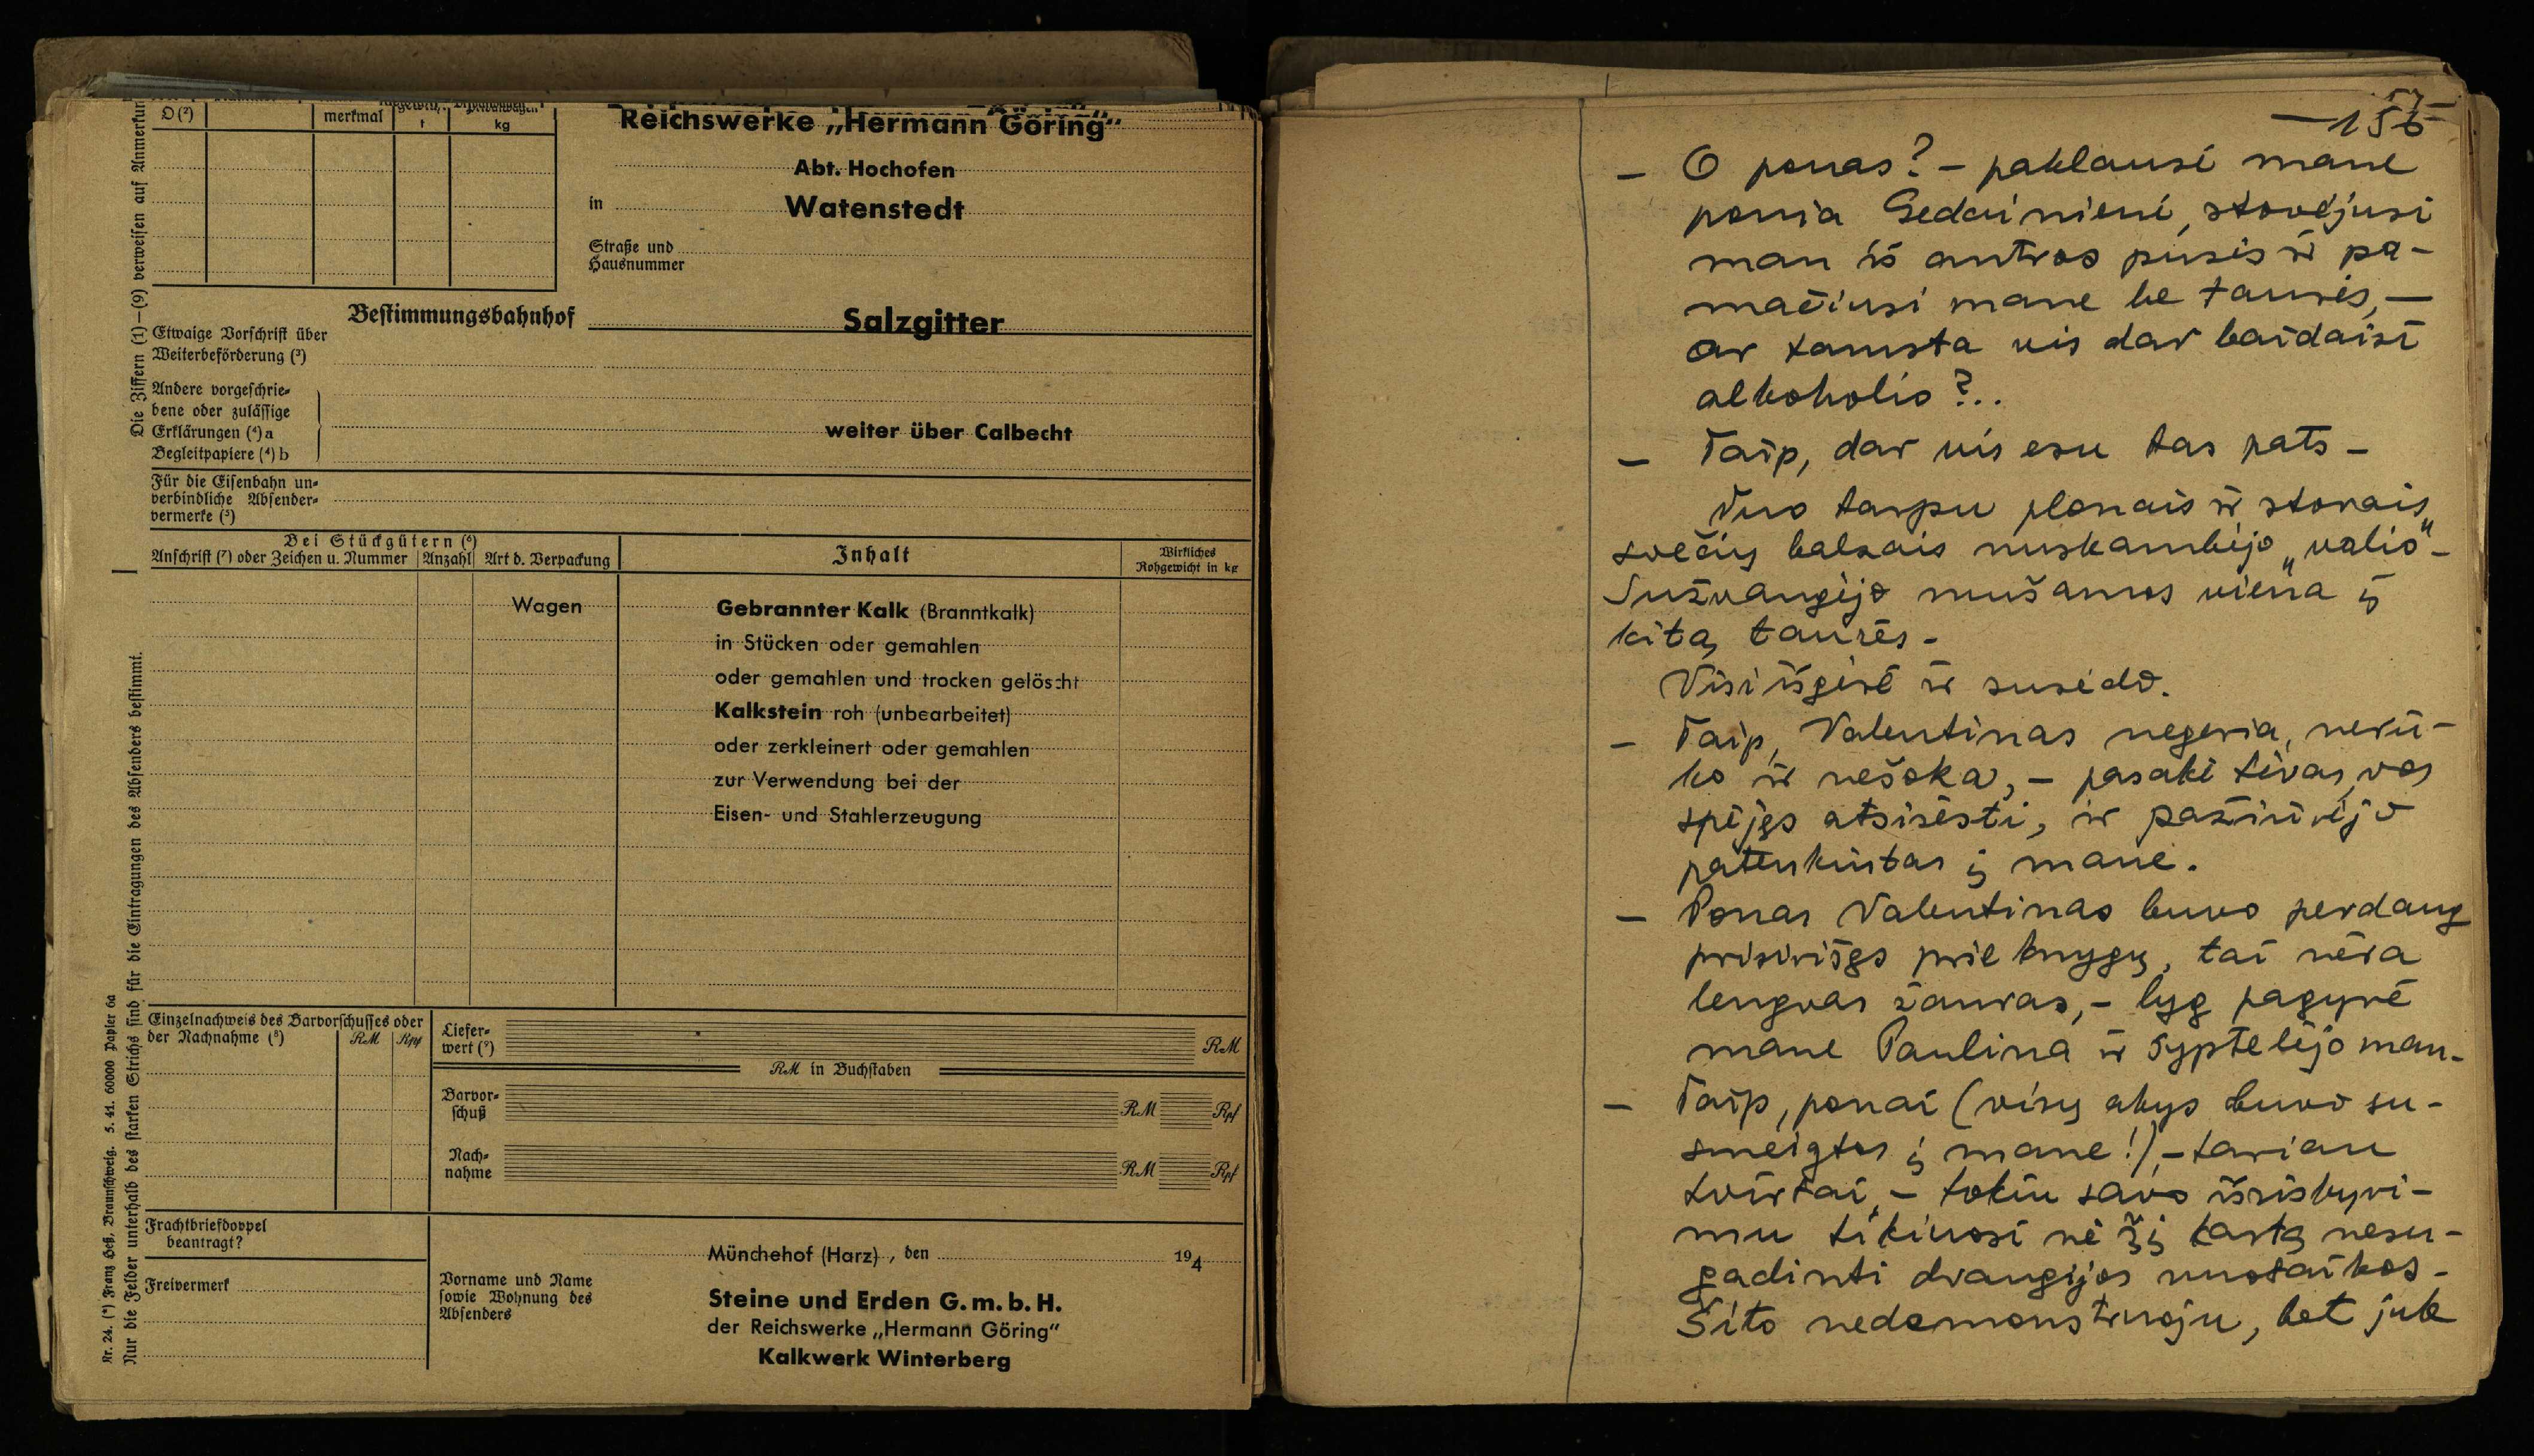 Die Ziffern (1)—(9) verweisen auf Anmerkun
D (²)
merkmal
t
kg
Reichswerke „Hermann Göring“
Abt. Hochofen
in Watenstedt
Straße und
Hausnummer
Bestimmungsbahnhof Salzgitter
Etwaige Vorschrift über
Weiterbeförderung (³)
Andere vorgeschrie-
bene oder zulässige
Erklärungen (⁴) a
Begleitpapiere (⁴) b
weiter über Calbecht
Für die Eisenbahn un-
verbindliche Absender-
vermerke (⁵)
Bei Stückgütern (⁶)
Anschrift (⁷) oder Zeichen u. Nummer Anzahl Art d. Verpackung
Inhalt
Wirkliches
Rohgewicht in kg
Wagen Gebrannter Kalk (Branntkalk)
in Stücken oder gemahlen
oder gemahlen und trocken gelöscht
Kalkstein roh (unbearbeitet)
oder zerkleinert oder gemahlen
zur Verwendung bei der
Eisen- und Stahlerzeugung
Nr. 24. (*) Franz Heß, Braunschweig. 5. 41. 60000 Papier 6a
Nur die Felder unterhalb des starken Strichs sind für die Eintragungen des Absenders bestimmt.
Einzelnachweis des Barvorschusses oder
der Nachnahme (⁸) RM Rpf
Liefer-
wert (⁹) RM
RM in Buchstaben
Barvor-
schuß RM Rpf
Nach-
nahme RM Rpf
Frachtbriefdoppel
beantragt?
Freivermerk
Münchehof (Harz), den 194
Vorname und Name
sowie Wohnung des
Absenders
Steine und Erden G. m. b. H.
der Reichswerke „Hermann Göring“
Kalkwerk Winterberg
– O ponas? – paklausė mane
ponia Gedainienė, stovėjusi
man iš antros pusės ir pa-
mačiusi mane be taurės, –
ar tamsta vis dar baidaisi
alkoholio?..
– Taip, dar vis esu tas pats –
Tuo tarpu plonais ir storais
svečių balsais nuskambėjo „valio“ –
Sužvangėjo mušamos viena į
kitą taurės –
Visi išgėrė ir susėdo.
– Taip, Valentinas negeria, nerū-
ko ir nešoka, – pasakė tėvas, vos
spėjęs atsisėsti, ir pažiūrėjo
patenkintas į mane.
– Ponas Valentinas buvo perdaug
prisirišęs prie knygų, tai nėra
lengvas žanras, – lyg pagyrė
mane Paulina ir šyptelėjo man –
– Taip, ponai (visų akys buvo su-
smeigtos į mane!), – tariau
tvirtai, – tokiu savo išsiskyri-
mu tikiuosi nė šį kartą nesu-
gadinti draugijos nuotaikos –
Šito nedemonstruoju, bet juk